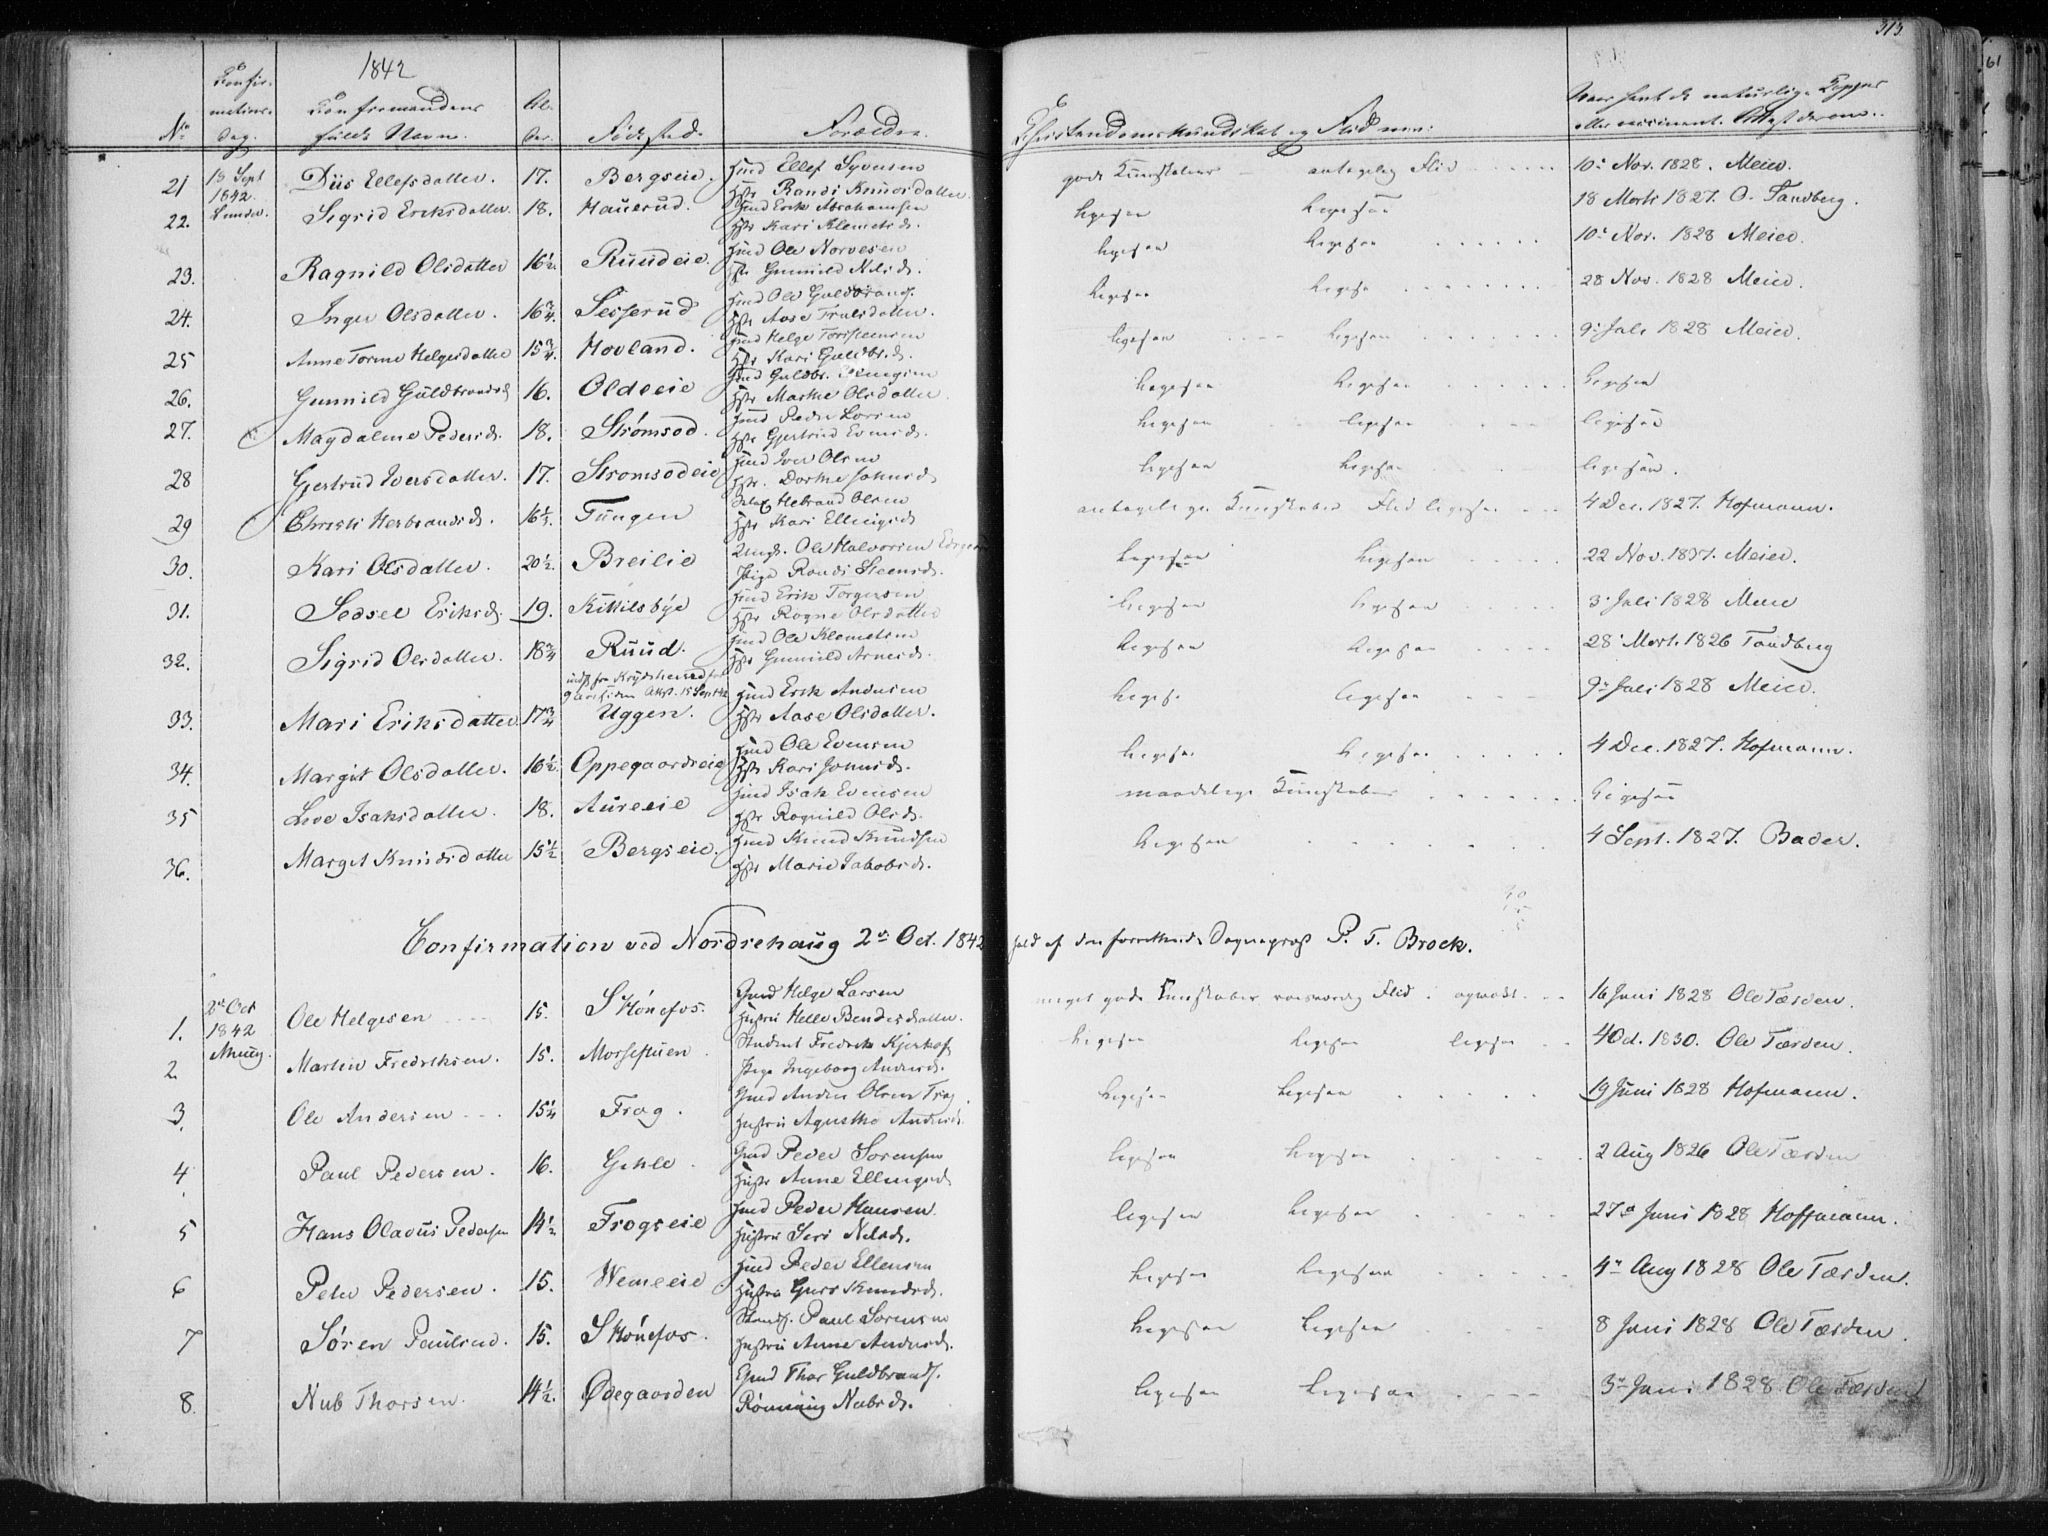 313
61
1842
No
Confir-
mations-
Dag.
Confirmandens
fulde Navn.
Al-
der.
Födested.
Forældre.
Christendomskundskab og Flid
Naar havt de naturlige Kopper
eller vaccineret. Attest derom.
21 13 Sept 1842 Diis Ellefsdatter. 17. Bergseie. Hmd Ellef Syversen Hstr Randi Knudsdatter gode Kundskaber antagelig Flid 10de Nov. 1828. Meier.
22. Sigrid Eriksdatter. 18. Hauerud. Hmd Erik Abrahamsen Hstr Kari Klemetsd. ligesaa ligesaa 18 Marts 1827. O. Tandberg.
23. Ragnild Olsdatter 16½. Ruudeie. Hmd Ole Narvesen Hstr Gunnild Nilsd. ligesaa ligesaa 10de Nov. 1828 Meier.
24. Inger Olsdatter. 16¾. Sesserud Hmd Ole Guldbrands. Hstr Aase Trulsdatter. ligesaa ligesaa 28 Nov. 1828 Meier.
25 Anne Torine Helgesdatter 15¾. Hovland. Hmd Helge Torstensen Hstr Kari Guldbr.d. ligesaa ligesaa 9de Juli 1828 Meier.
26. Gunnild Guldbrandsd 16. Oldeeie Hmd Guldbr. Hstr Marthe Olsdatter ligesaa ligesaa ligesaa
27. Magdalene Pedersd. 18. Strømsod. Hmd Peder Larsen Hstr Gjertrud Evensd. ligesaa ligesaa ligesaa
28 Gjertrud Iversdatter. 17. Strømsodeie Hmd Iver Olsen Hstr. Dorthe Johnsd. ligesaa ligesaa ligesaa.
29 Christi Herbrandsd. 16½. Tüngen Hebrand Olsen Hstr Kari Ellingsd antagelige Kundskaber Flid ligesaa 4 Dec. 1827. Hofmann.
30. Kari Olsdatter. 20½. Breilie Ungk. Ole Halvorsen Pige Randi Steensd. ligesaa ligesaa 22 Nov. 1837. Meier.
31. Sedsel Eriksd. 19. Kittilsbye Hmd Erik Torgersen Hstr Ragne Olsdatter ligesaa ligesaa 3de Juli 1828 Meier
32. Sigrid Olsdatter. 18¾ Ruud. Hmd Ole Klemetsen Hstr Gunnild Arnesd. ligesaa ligesaa 28de Mart. 1826 Tandberg
indf. fra Krydsherred
9 Attst. 15 Sept 42
33. Mari Eriksdatter 17¾ Uggen. Hmd Erik Andersen Hstr Aase Olsdatter. ligesaa ligesaa 9de Juli 1828 Meier.
34. Margit Olsdatter. 16½. Oppegaardseie Hmd Ole Evensen Hstr Kari Johnsd. ligesaa ligesaa 4 Dec. 1827. Hofmann.
35 Live Isaksdatter. 18. Aureeie Hmd Isak Evensen Hstr Ragnild Olsd. maadelige Kundskaber ligesaa
36. Marget Knudsdatter 15½ Bergseie. Hmd Knud Knudsen Hstr Marie Jakobsd. ligesaa 4 Sept. 1827. Bader.
Confirmation ved Nordrehaug 2den Oct. 1842 hold af den forrettende Sogneprest P. T. Brock.
1. 2den Oct 1842 Ole Helgesen 15. Skönefos. Gmd Helge Larsen Hustru Helle Bendesdatter. meget gode Kundskaber roesværdig Flid 16 Juni 1828 Ole Tærden.
2. Martin Fredriksen. 15. Morsestuen. Student Fredrik Kjerkof Pige Ingeborg Andersd. ligesaa ligesaa ligesaa 4 Oct. 1830. Ole Tærden.
3. Ole Andersen 15¼ Frog. Gmd Anders Olsen Frog. Hustru Agnethe Andersd. ligesaa ligesaa 19 Juni 1828 Hofmann.
4 Paul Pedersen. 16. Gihle. Gmd Peder Sörensen Hustr Anne Ellingsd. ligesaa ligesaa 2 Aug 1826 Ole Tærden
5 Hans Olavus Pedersen 14½. Frogseie Hmd Peder Hansen. Hustru Siri Nelsd. ligesaa ligesaa 27de Juni 1828 Hoffmann.
6 Peder Pedersen. 15. Wemeeie Hmd Peder Ellensen Hustru Guro Knudsd. ligesaa ligesaa 4de Aug 1828 Ole Tærden.
7 Sören Paulsen. 15. Skönefos. Paul Sörensen Hustru Anne Andersd. ligesaa ligesaa 8 Juni 1828 Ole Tærden.
8. Nub Thorsen. 14½. Ødegaarden Gmd Thor Guldbrands. Rönnaug Nubsd. ligesaa ligesaa 3de Juni 1828 Ole Tærden